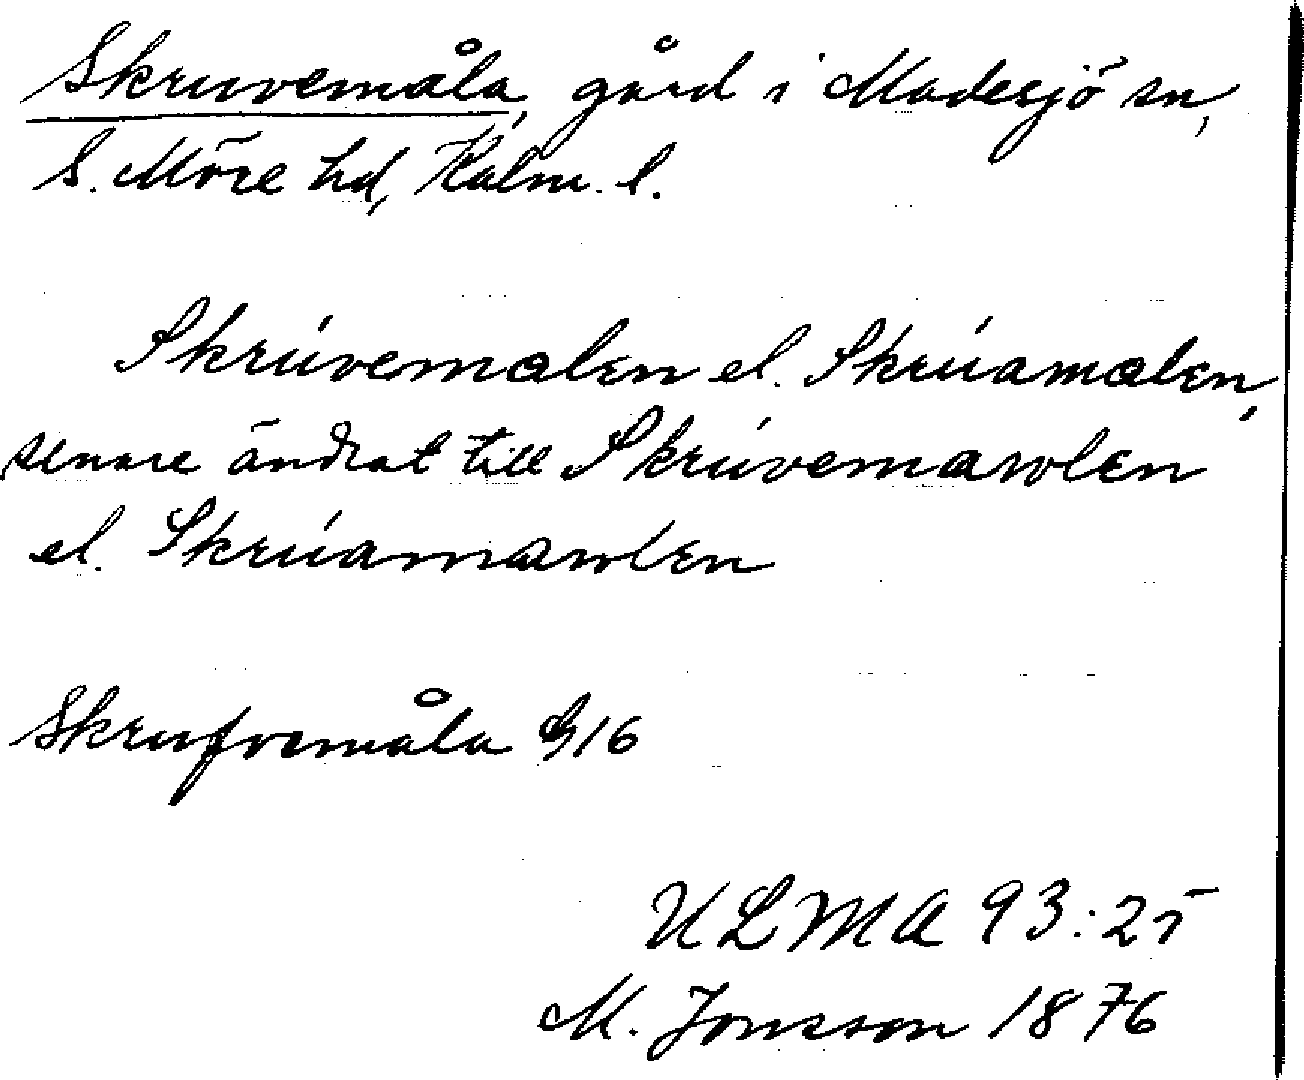 Skruvemåla, gård i Madesjö sn,
S. Möre hd, Kalm. l.
Skrúvemalen el. Skrúamalen,
senare ändrat till Skrúvemawlen
el. Skrúamawlen
Skrufvemåla G16
ULMA 93:25
M. Jonsson 1876